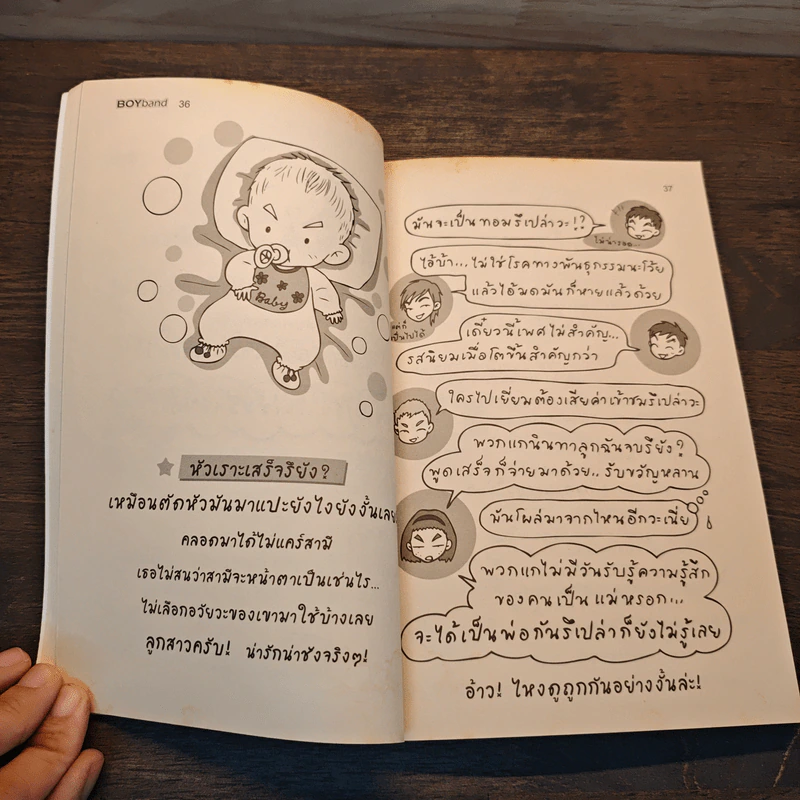 BOYband 36
Baby
หัวเราะเสร็จรึยัง?
เหมือนตัดหัวมันมาแปะยังไงยังงั้นเลย!
คลอดมาได้ไม่แคร์สามี
เธอไม่สนว่าสามีจะหน้าตาเป็นเช่นไร...
ไม่เลือกอวัยวะของเขามาใช้บ้างเลย
ลูกสาวครับ! น่ารักน่าชังจริงๆ!
37
มันจะเป็นทอมรึเปล่าวะ!?
ไม่น่ารอด...
ไอ้บ้า...ไม่ใช่โรคทางพันธุกรรมนะโว้ย
แล้วไอ้มดมันก็หายแล้วด้วย
แต่ก็
เป็นไปได้
เดี๋ยวนี้เพศไม่สำคัญ...
รสนิยมเมื่อโตขึ้นสำคัญกว่า
ใครไปเยี่ยมต้องเสียค่าเข้าชมรึเปล่าวะ
พวกแกนินทาลูกฉันจบรึยัง?
พูดเสร็จก็จ่ายมาด้วย..รับขวัญหลาน
มันโผล่มาจากไหนอีกวะเนี่ย
พวกแกไม่มีวันรับรู้ความรู้สึก
ของคนเป็นแม่หรอก...
จะได้เป็นพ่อกันรึเปล่าก็ยังไม่รู้เลย
อ้าว! ไหงดูถูกกันอย่างงั้นล่ะ!